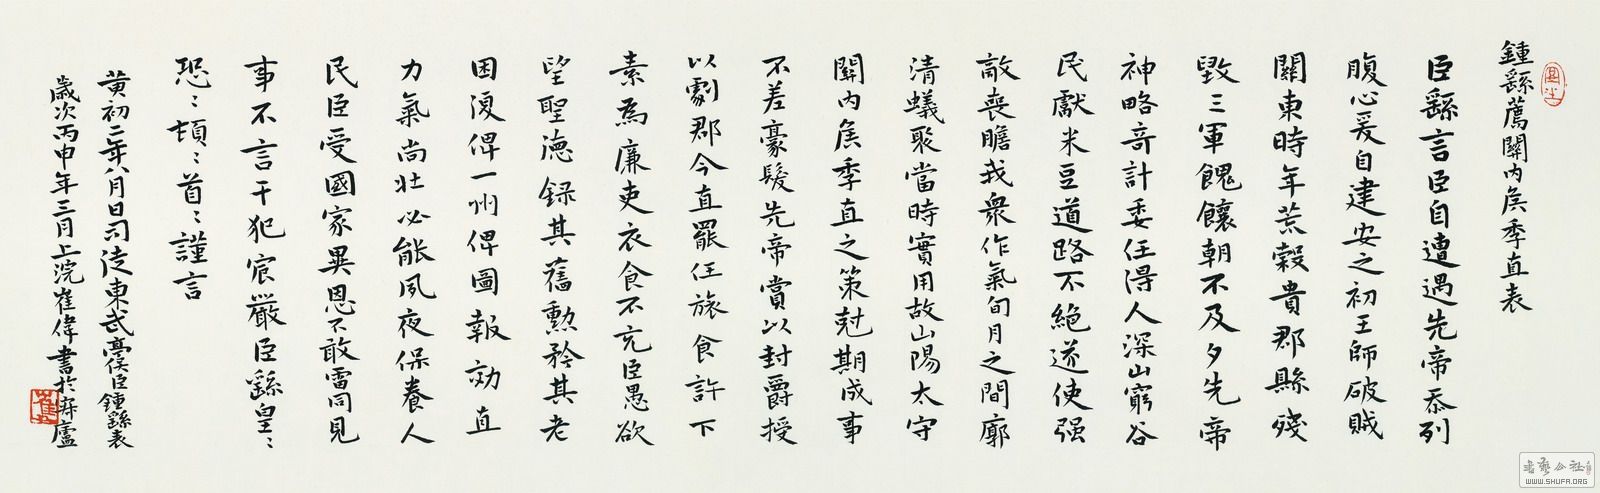 鍾繇薦關內侯季直表
臣繇言臣自遭遇先帝忝列
腹心爰自建安之初王師破賊
關東時年荒穀貴郡縣殘
毀三軍餽饟朝不及夕先帝
神略奇計委任得人深山窮谷
民獻米豆道路不絕遂使强
敵喪膽我衆作氣旬月之間廓
清蟻聚當時實用故山陽太守
關內侯季直之策尅期成事
不差豪髮先帝賞以封爵授
以劇郡今直罷任旅食許下
素為廉吏衣食不充臣愚欲
望聖德録其舊勲矜其老
困復俾一州俾圖報効直
力氣尚壯必能夙夜保養人
民臣受國家異恩不敢雷同見
事不言干犯宸嚴臣繇皇〻
恐〻頓〻首〻謹言
黄初二年八月日司徒東武亭侯臣鍾繇表
歲次丙申年三月上浣崔偉書於寐廬
書藝公社
WWW.SHUFA.ORG